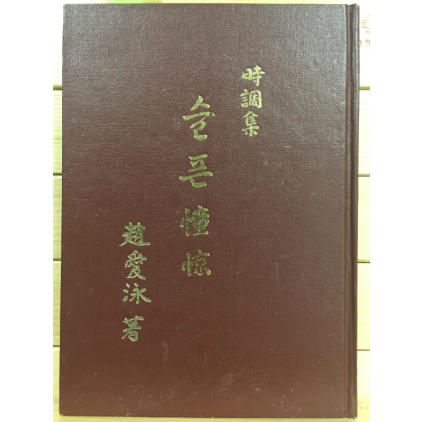 時調集
슬픈憧憬
趙愛泳 著